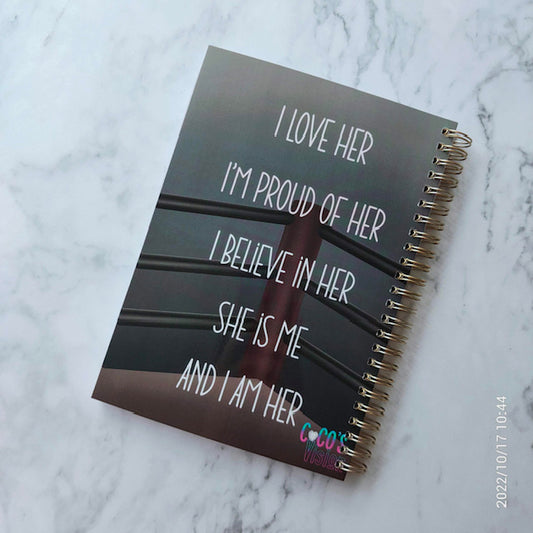 I LOVE HER
I'M PROUD OF HER
I BELIEVE IN HER
SHE IS ME
AND I AM HER
COCO'S
VISION
2022/10/17 10:44